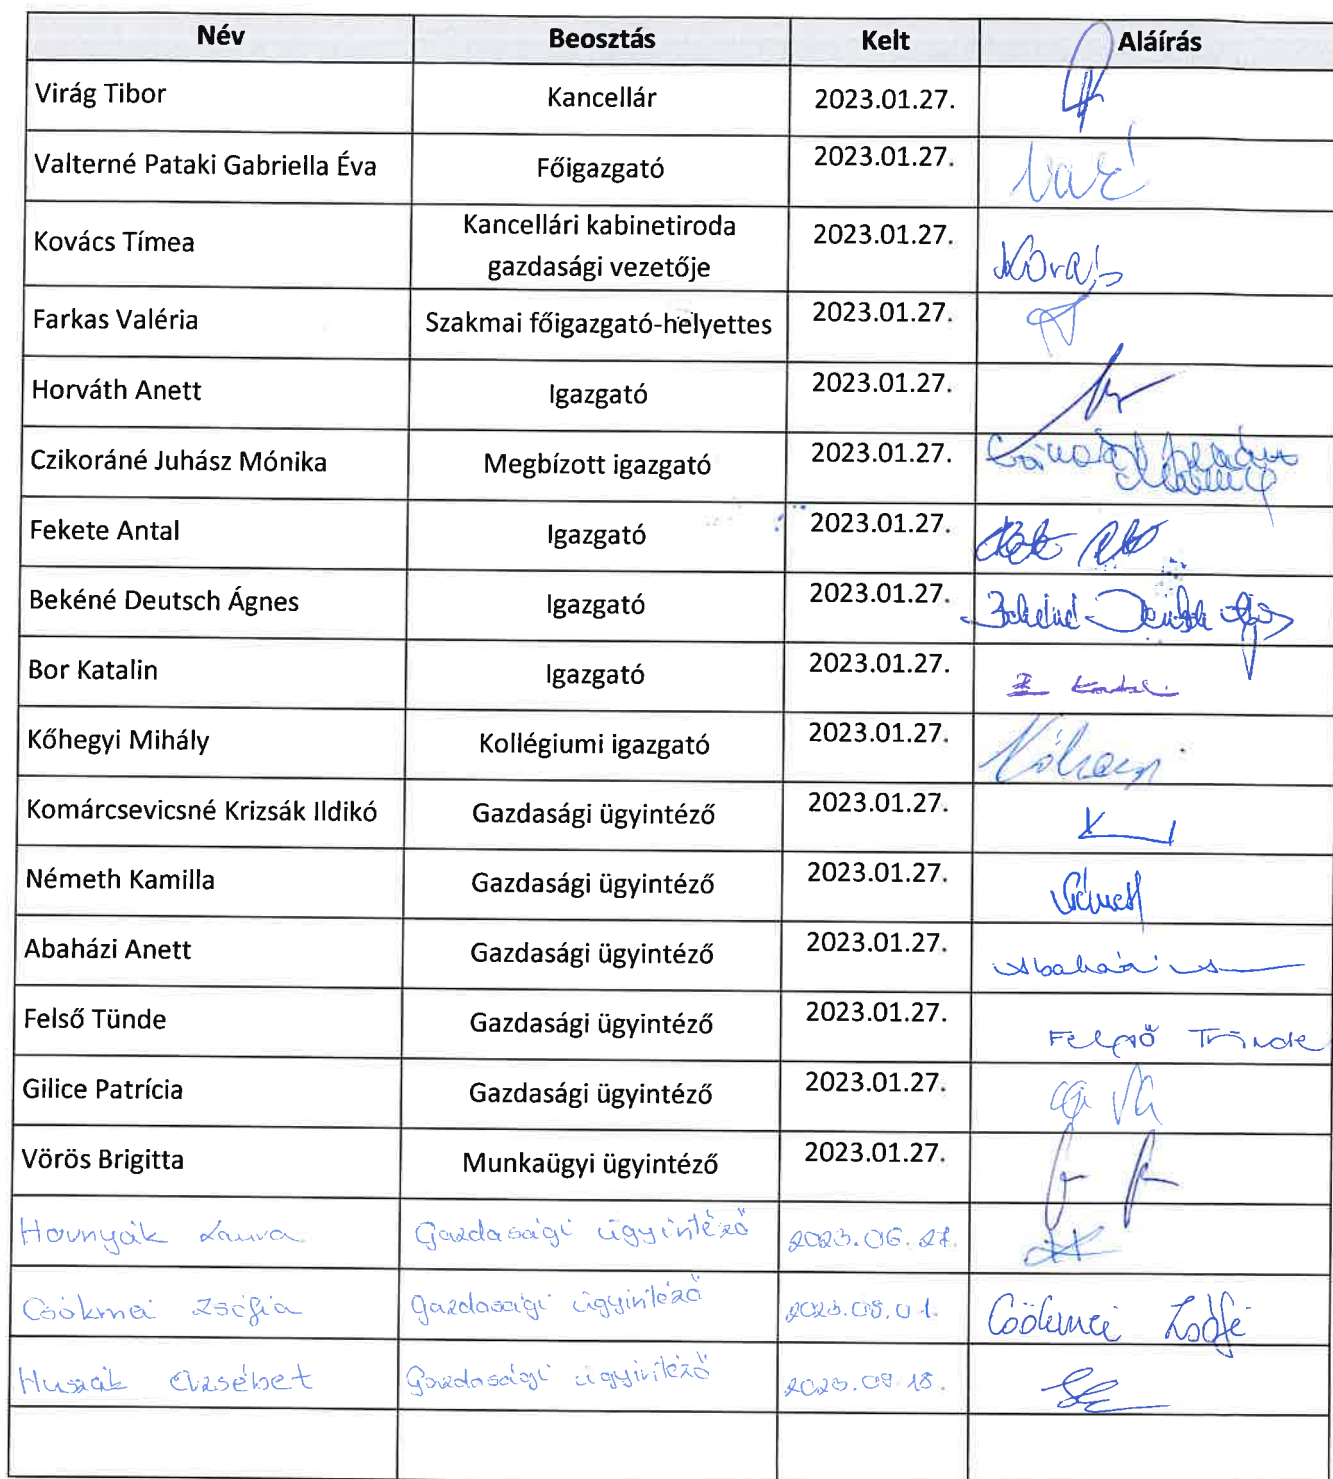 Név Beosztás Kelt Aláírás
Virág Tibor Kancellár 2023.01.27.
Valterné Pataki Gabriella Éva Főigazgató 2023.01.27.
Kovács Tímea Kancellári kabinetiroda gazdasági vezetője 2023.01.27. Kovács
Farkas Valéria Szakmai főigazgató-helyettes 2023.01.27.
Horváth Anett Igazgató 2023.01.27.
Czikoráné Juhász Mónika Megbízott igazgató 2023.01.27.
Fekete Antal Igazgató 2023.01.27.
Bekéné Deutsch Ágnes Igazgató 2023.01.27. Bekéné Deutsch Ágnes
Bor Katalin Igazgató 2023.01.27.
Kőhegyi Mihály Kollégiumi igazgató 2023.01.27. Kőhegyi
Komárcsevicsné Krizsák Ildikó Gazdasági ügyintéző 2023.01.27.
Németh Kamilla Gazdasági ügyintéző 2023.01.27. Németh
Abaházi Anett Gazdasági ügyintéző 2023.01.27. Abaházi
Felső Tünde Gazdasági ügyintéző 2023.01.27. Felső Tünde
Gilice Patrícia Gazdasági ügyintéző 2023.01.27.
Vörös Brigitta Munkaügyi ügyintéző 2023.01.27.
Hornyák Laura Gazdasági ügyintéző 2023.06.27.
Csökmei Zsófia Gazdasági ügyintéző 2023.08.01. Csökmei Zsófi
Huszák Erzsébet Gazdasági ügyintéző 2023.09.18.